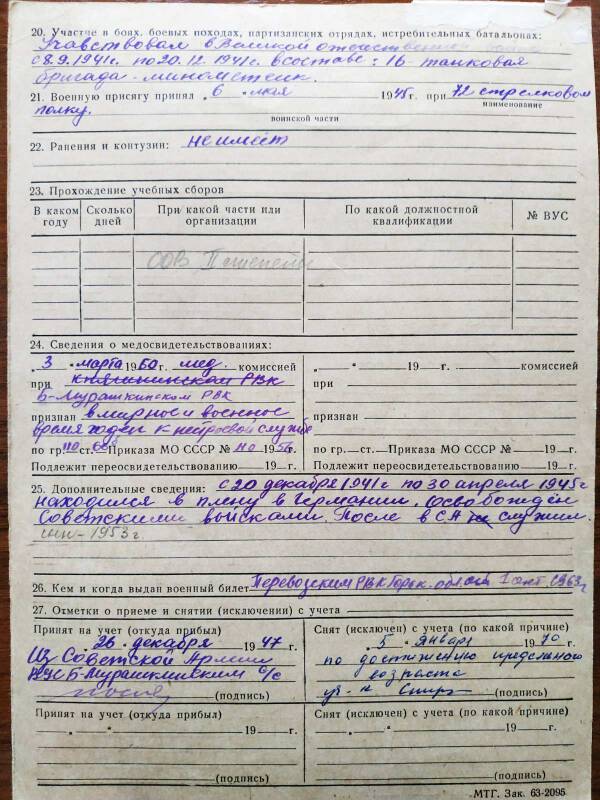 20. Участие в боях, боевых походах, партизанских отрядах, истребительных батальонах:
Учавствовал в Великой отечественной
с 8.9.1941г. по 20.12.1941г. в составе: 16 танковая
бригада - минометчик.
21. Военную присягу принял „ 6 “ мая 1945 г. при 72 стрелковом
наименование
полку.
воинской части
22. Ранения и контузии: не имеет
23. Прохождение учебных сборов
В каком году Сколько дней При какой части или организации По какой должностной квалификации № ВУС
24. Сведения о медосвидетельствованиях:
„ 3 “ марта 1960 г. мед. комиссией
при княгининском РВК
Б-Мурашкинском РВК
признан в мирное и военное
время годен к нестроевой службе
по гр. ст. Приказа МО СССР № 110 195 г.
Подлежит переосвидетельствованию 19 г.
„ “ 19 г. комиссией
при
признан
по гр. — ст. — Приказа МО СССР № 19 г.
Подлежит переосвидетельствованию 19 г.
25. Дополнительные сведения: с 20 декабря 1941г по 30 апреля 1945г
находился в плену в Германии. Освобождён
Советскими войсками. После в СА не служил.
1953 г.
26. Кем и когда выдан военный билет Перевозским РВК Горьк. обл. 1 окт. 1963г
27. Отметки о приеме и снятии (исключении) с учета
Принят на учет (откуда прибыл)
„ 26 “ декабря 1947 г.
Из Советской Армии
Б-Мурашкинским с/с
(подпись)
Снят (исключен) с учета (по какой причине)
„ 5 “ января 1970 г.
по достижению предельного
возраста
(подпись)
Принят на учет (откуда прибыл)
„ “ 19 г.
(подпись)
Снят (исключен) с учета (по какой причине)
„ “ 19 г.
(подпись)
МТГ. Зак. 63-2095